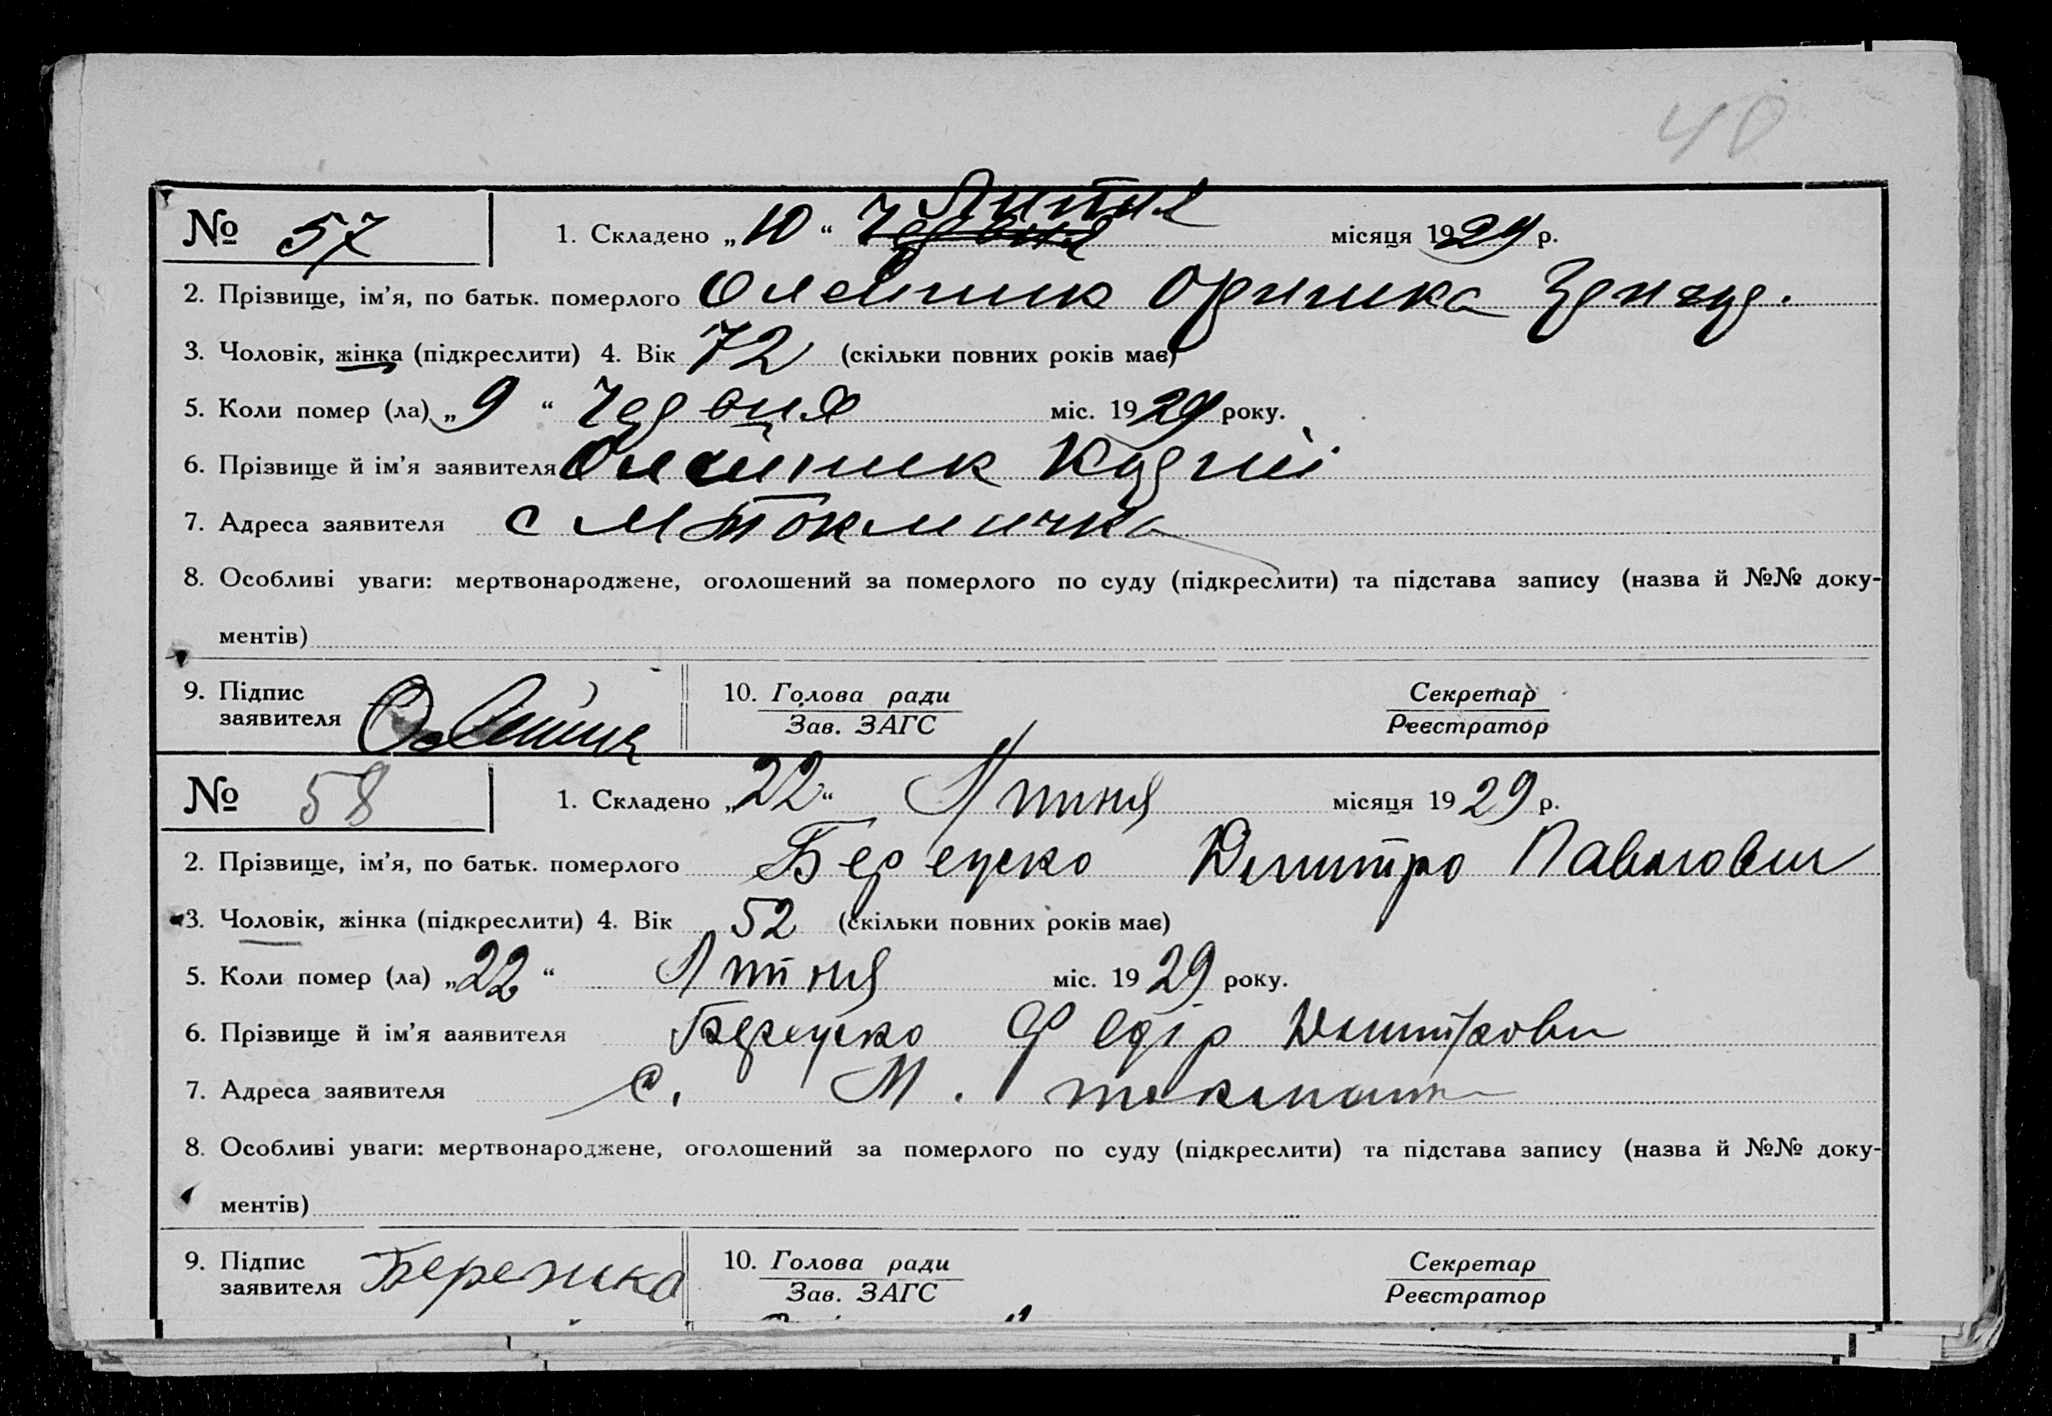 40
№ 57 1. Складено „10“ Червня Липня місяця 1929 р.
2. Прізвище, ім’я, по батьк. померлого Олейник Оринка
3. Чоловік, жінка (підкреслити) 4. Вік 72 (скільки повних років має)
5. Коли помер (ла) „9“ Червня міс. 1929 року.
6. Прізвище й ім’я заявителя Олейник
7. Адреса заявителя с М Токмачка
8. Особливі уваги: мертвонароджене, оголошений за померлого по суду (підкреслити) та підстава запису (назва й №№ доку-
ментів)
9. Підпис заявителя 10. Голова ради Секретар
Зав. ЗАГС Реєстратор
№ 58 1. Складено „22“ Липня місяця 1929 р.
2. Прізвище, ім’я, по батьк. померлого Дмитро Павлович
3. Чоловік, жінка (підкреслити) 4. Вік 52 (скільки повних років має)
5. Коли помер (ла) „22“ Липня міс. 1929 року.
6. Прізвище й ім’я заявителя Федір
7. Адреса заявителя с. М.
8. Особливі уваги: мертвонароджене, оголошений за померлого по суду (підкреслити) та підстава запису (назва й №№ доку-
ментів)
9. Підпис заявителя 10. Голова ради Секретар
Зав. ЗАГС Реєстратор